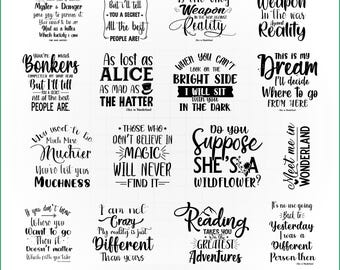 But I'll tell
YOU A SECRET
All the best
PEOPLE ARE.
Weapon
IN THE WAR AGAINST
Reality
Weapon
IN THE WAR
Reality
YOU'RE MAD
Bonkers
COMPLETELY OFF YOUR HEAD
But I'll Tell
YOU A SECRET
ALL OF THE BEST
PEOPLE ARE.
As lost as
ALICE
AS MAD AS
THE HATTER
WHEN YOU CAN'T
LOOK ON THE
BRIGHT SIDE
I WILL SIT
WITH YOU
IN THE DARK
THIS IS MY
Dream
I'LL DECIDE
Where to go
FROM HERE
You used to be
Much More
Muchier
You've lost your
MUCHNESS
THOSE WHO
DON'T BELIEVE IN
MAGIC
WILL NEVER
FIND IT
Do you
Suppose
SHE'S A
WILDFLOWER?
Meet me in
WONDERLAND
If you don't know
Where you
WANT to go
Then it
DOESN'T matter
Which path you take
I am not
Crazy
My reality is just
DIFFERENT
Than yours
Reading
TAKES YOU
ON THE
GREATEST
Adventures
It's no use going
Back to
Yesterday
I was a
Different
Person then